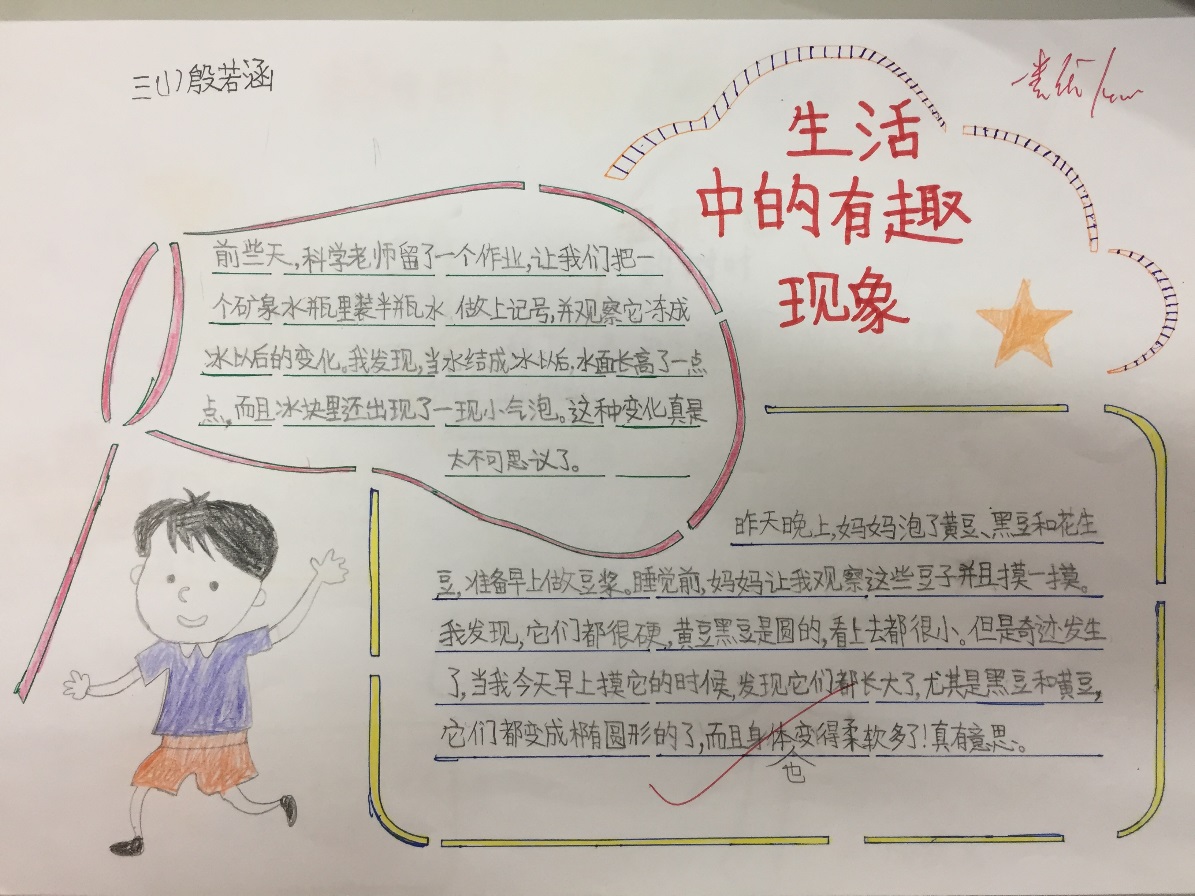 三(1)殷若涵
生活
中的有趣
现象
前些天,科学老师留了一个作业,让我们把一
个矿泉水瓶里装半瓶水 做上记号,并观察它冻成
冰以后的变化。我发现,当水结成冰以后,水面长高了一点
点,而且冰块里还出现了一现小气泡。这种变化真是
太不可思议了。
昨天晚上,妈妈泡了黄豆、黑豆和花生
豆,准备早上做豆浆。睡觉前,妈妈让我观察这些豆子并且摸一摸。
我发现,它们都很硬,黄豆黑豆是圆的,看上去都很小。但是奇迹发生
了,当我今天早上摸它的时候,发现它们都长大了,尤其是黑豆和黄豆,
它们都变成椭圆形的了,而且身体变得柔软多了!真有意思。
也